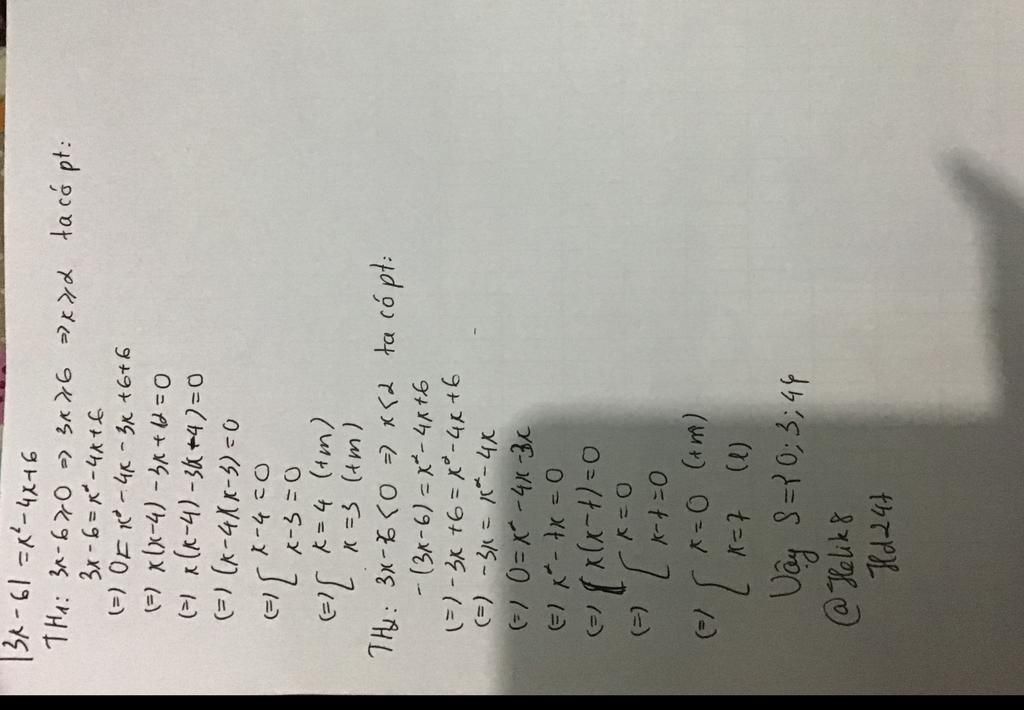 |3x-6| = x²-4x+6
TH1: 3x-6≥0 => 3x≥6 => x≥2 ta có pt:
3x-6=x²-4x+6
(=) 0= x²-4x-3x+6+6
(=) x(x-4)-3x+12=0
(=) x(x-4)-3(x-4)=0
(=) (x-4)(x-3)=0
(=) [ x-4=0
x-3=0
(=) [ x=4 (tm)
x=3 (tm)
TH2: 3x-6<0 => x<2 ta có pt:
-(3x-6)=x²-4x+6
(=) -3x+6=x²-4x+6
(=) -3x = x²-4x
(=) 0=x²-4x-3x
(=) x²-7x=0
(=) x(x-7)=0
(=) [ x=0
x-7=0
(=) [ x=0 (tm)
x=7 (l)
Vậy S={0;3;4}
@Helik8
Hd247